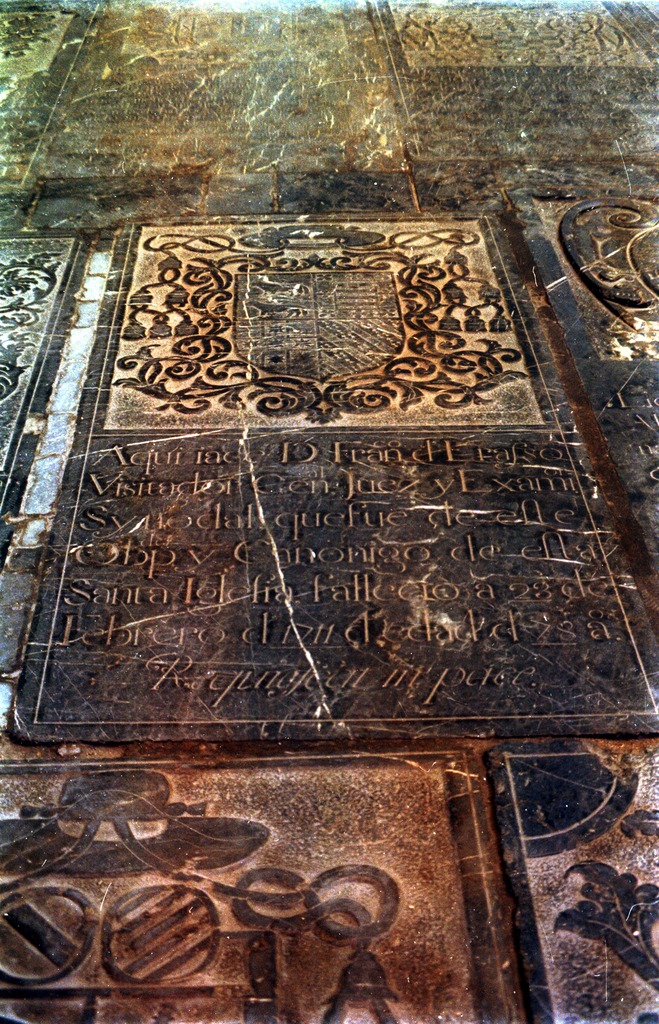 Aqui iace D. Fran.co d Erasso
Visitador Gen.al Juez y Exami.r
Synodal que fue de este
Obp.o y Canonigo de esta
Santa Iglesia fallecio a 28 de
Febrero d 1711 d edad d 78 a.s
Requiescat in pace.